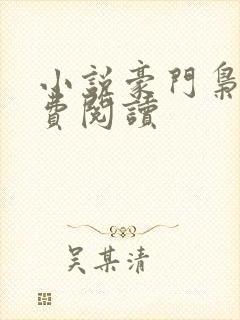 小説豪門梟
費閱讀
吴某清